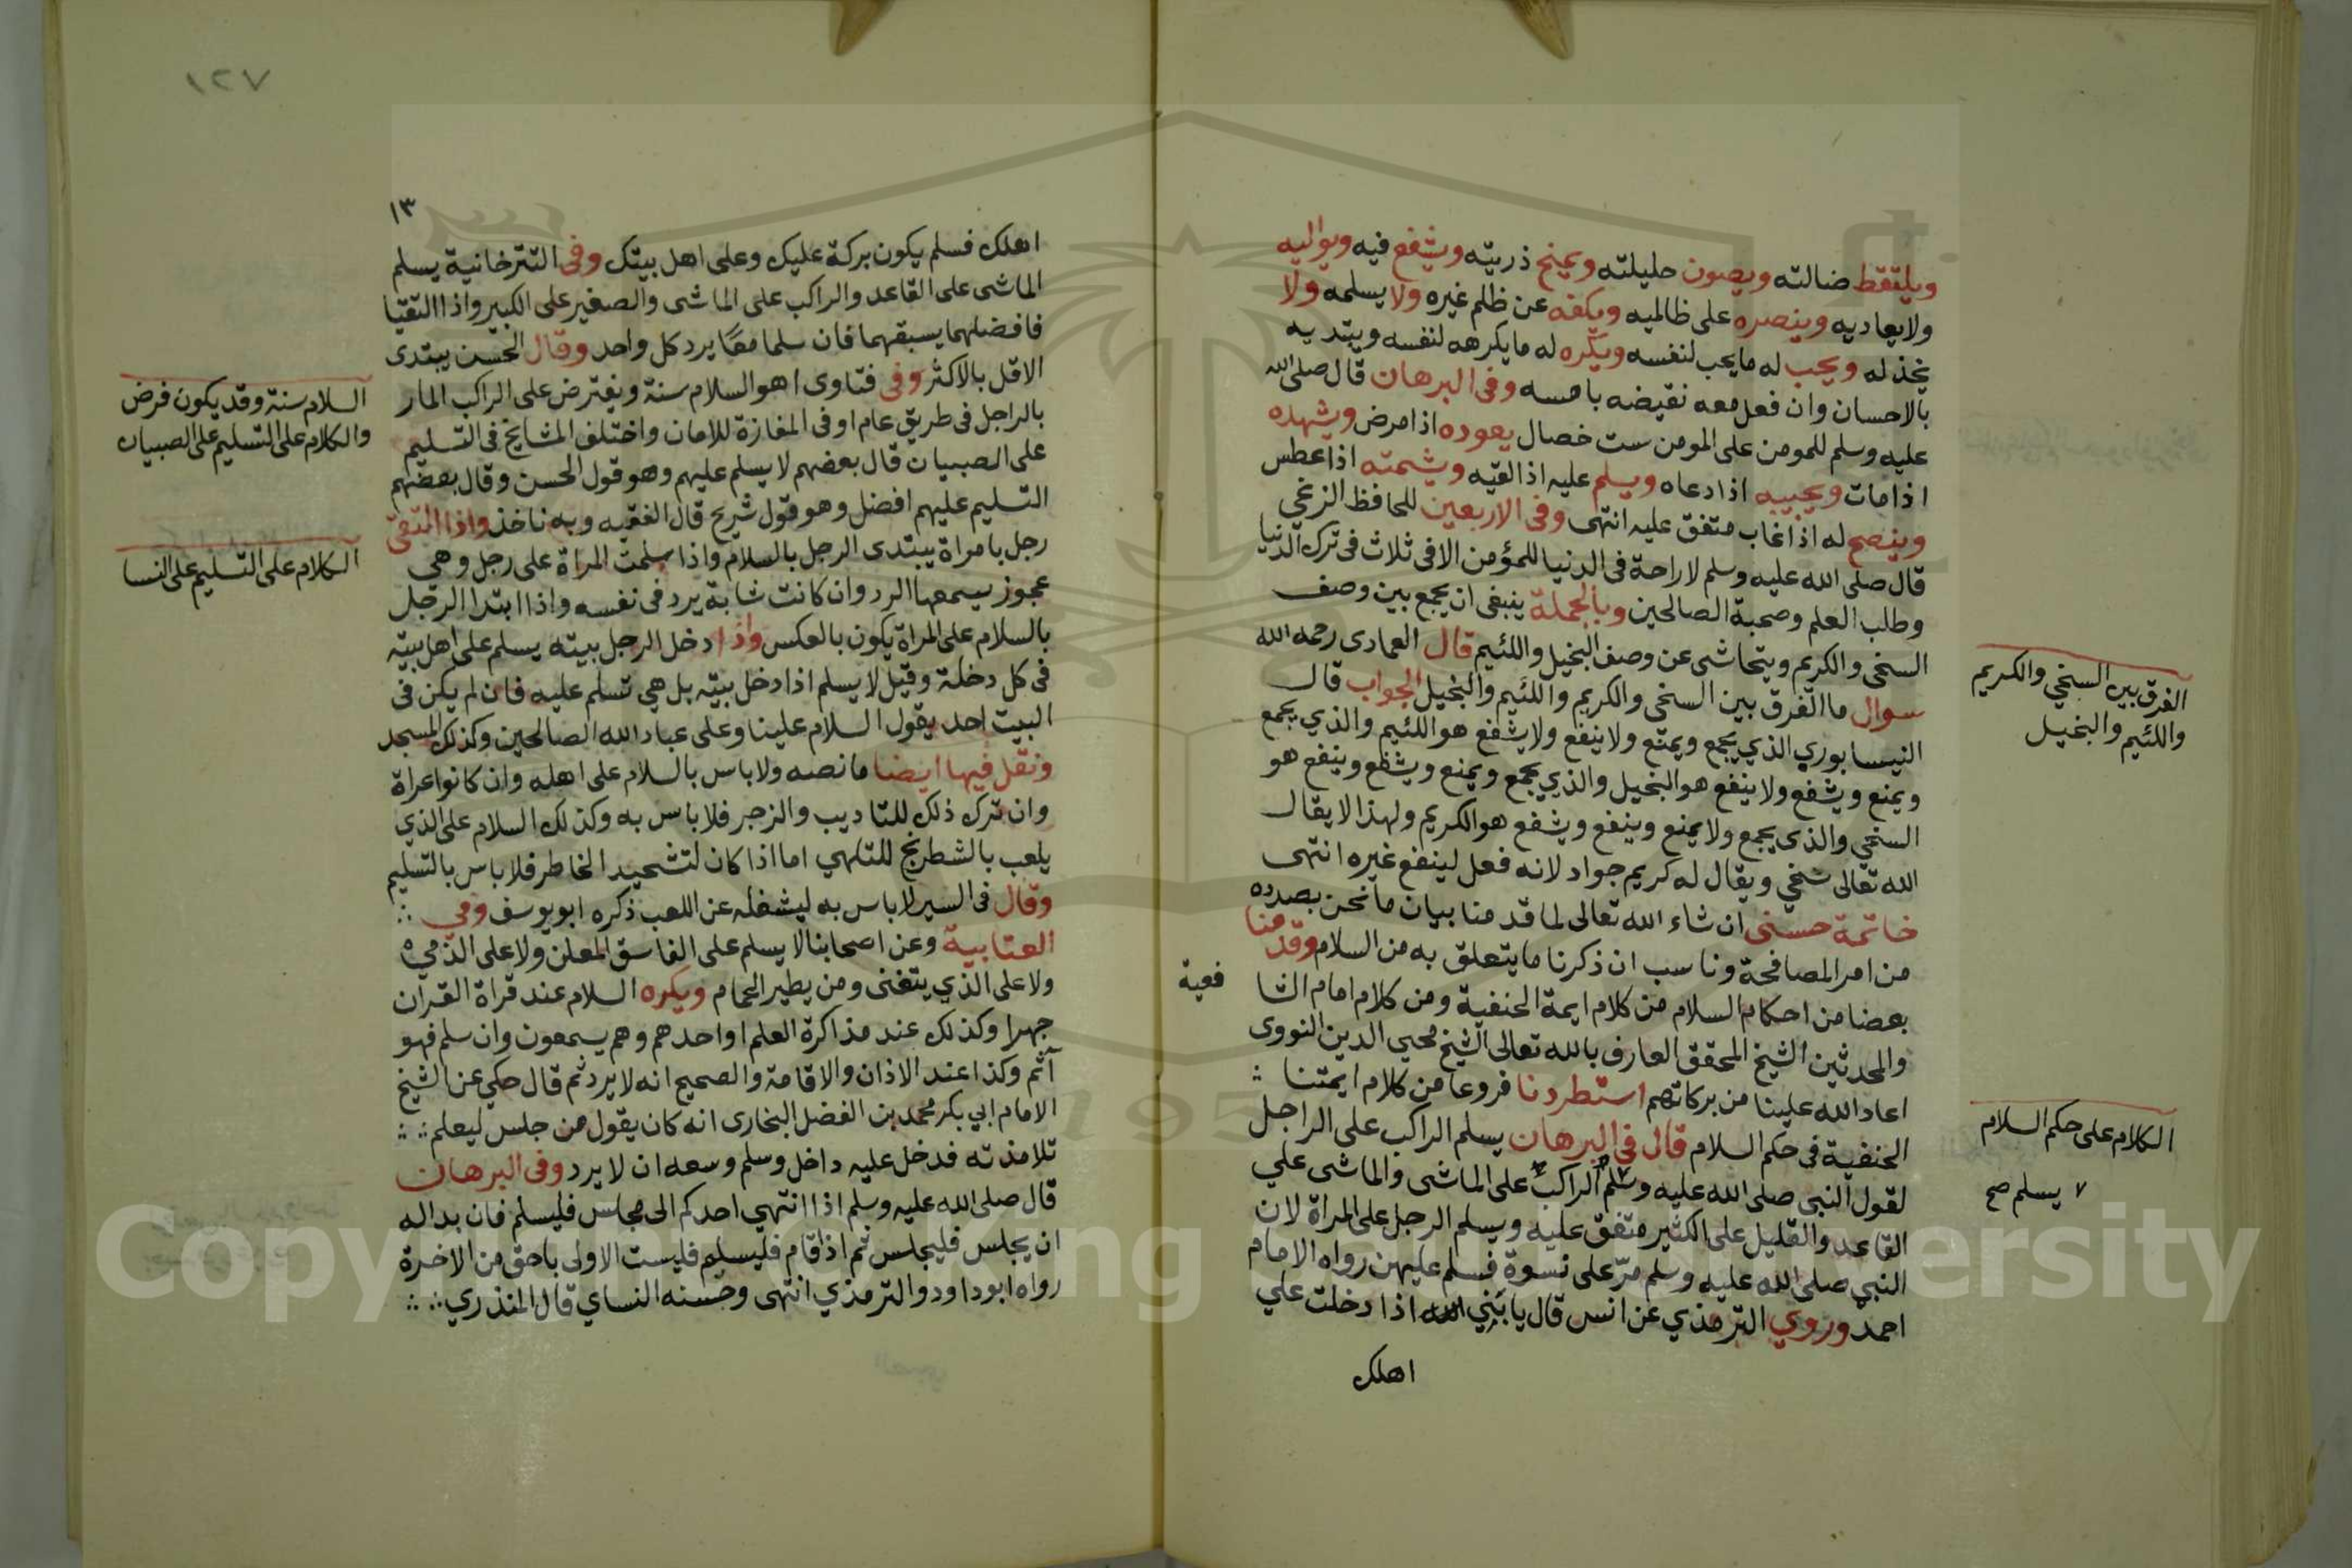 ويلتقط ضالته ويصون حليلته ويمنح ذريته ويشفع فيه ويواليه
ولايعاديه وينصره على ظالميه ويكفه عن ظلم غيره ولا يسلمه ولا
يخذله ويحب له مايحب لنفسه ويكره له مايكرهه لنفسه ويبتديه
بالاحسان وان فعل معه نقيضه بامسه وفى البرهان قال صلى الله
عليه وسلم للمومن على المومن ست خصال يعوده اذا مرض ويشهده
اذا مات ويجيبه اذا دعاه ويسلم عليه اذا لقيه ويشمته اذا عطس
وينصح له اذا غاب متفق عليه انتهى وفى الاربعين للحافظ الزغبي
قال صلى الله عليه وسلم لا راحة فى الدنيا للمؤمن الا فى ثلاث فى ترك الدنيا
وطلب العلم وصحبة الصالحين وبالجملة ينبغى ان يجمع بين وصف
السخى والكريم ويتحاشى عن وصف البخيل واللئيم قال العمادى رحمه الله
سوال ما الفرق بين السخى والكريم واللئيم والبخيل الجواب قال
النيسابوري الذي يجمع ويمنع ولا ينفع ولا يشفع هو اللئيم والذي يجمع
ويمنع ويشفع ولا ينفع هو البخيل والذي يجمع ويمنع ويشفع وينفع هو
السخي والذى يجمع ولا يمنع وينفع ويشفع هو الكريم ولهذا لا يقال
الله تعالى سخي ويقال له كريم جواد لانه فعل لينفع غيره انتهى
خاتمة حسنى ان شاء الله تعالى لما قدمنا بيان ما نحن بصدده
من امر المصافحة وناسب ان ذكرنا ما يتعلق به من السلام وقدمنا
بعضا من احكام السلام من كلام ايمة الحنفية ومن كلام امام الشا
فعية
والمحدثين الشيخ المحقق العارف بالله تعالى الشيخ محيي الدين النووى
اعاد الله علينا من بركاتهم استطردنا فروعا من كلام ايمتنا
الحنفية فى حكم السلام قال فى البرهان يسلم الراكب على الراجل
لقول النبي صلى الله عليه وسلم الراكب على الماشى والماشى على
القاعد والقليل على الكثير متفق عليه ويسلم الرجل على المراة لان
النبي صلى الله عليه وسلم مرّ على نسوة فسلم عليهن رواه الامام
احمد وروي الترمذي عن انس قال يا بني اذا دخلت على
اهلك
الفرق بين السخي والكريم
واللئيم والبخيل
الكلام على حكم السلام
٧ يسلم صح
١٢٧
١٣
اهلك فسلم يكون بركة عليك وعلى اهل بيتك وفى التترخانية يسلم
الماشى على القاعد والراكب على الماشى والصغير على الكبير واذا التقيا
فافضلهما يسبقهما فان سلما معًا يرد كل واحد وقال الحسن يبتدى
الاقل بالاكثر وفى فتاوى اهو السلام سنة ويفترض على الراكب المار
بالراجل فى طريق عام او فى المفازة للامان واختلف المشايخ فى التسليم
على الصبيان قال بعضهم لا يسلم عليهم وهو قول الحسن وقال بعضهم
التسليم عليهم افضل وهو قول شريح قال الفقيه وبه ناخذ واذا التقى
رجل بامراة يبتدى الرجل بالسلام واذا سلمت المراة على رجل وهي
عجوز يسمعها الرد وان كانت شابة يرد فى نفسه واذا ابتدا الرجل
بالسلام على المراة يكون بالعكس واذا دخل الرجل بيته يسلم على اهل بيته
فى كل دخلة وقيل لا يسلم اذا دخل بيته بل هي تسلم عليه فان لم يكن فى
البيت احد يقول السلام علينا وعلى عباد الله الصالحين وكذلك المسجد
ونقل فيها ايضا ما نصه ولا باس بالسلام على اهله وان كانوا عراة
وان ترك ذلك للتاديب والزجر فلا باس به وكذلك السلام على الذي
يلعب بالشطرنج للتلهي اما اذا كان لتشحيد الخاطر فلا باس بالتسليم
وقال فى السير لا باس به ليشغله عن اللعب ذكره ابو يوسف وفي
العتابية وعن اصحابنا لا يسلم على الفاسق المعلن ولا على الذمي
ولا على الذي يتغنى ومن يطير الحمام ويكره السلام عند قراة القران
جهرا وكذلك عند مذاكرة العلم او احدهم وهم يسمعون وان سلم فهو
آثم وكذا عند الاذان والاقامة والصحيح انه لا يرد ثم قال حكي عن الشيخ
الامام ابي بكر محمد بن الفضل البخارى انه كان يقول من جلس ليعلم
تلامذته فدخل عليه داخل وسلم وسعه ان لا يرد وفى البرهان
قال صلى الله عليه وسلم اذا انتهي احدكم الى مجلس فليسلم فان بدا له
ان يجلس فليجلس ثم اذا قام فليسلم فليست الاولى باحق من الاخرة
رواه ابو داود والترمذي انتهى وحسنه النساي قال المنذري
السلام سنة وقد يكون فرض
والكلام على التسليم على الصبيان
الكلام على التسليم على النسا